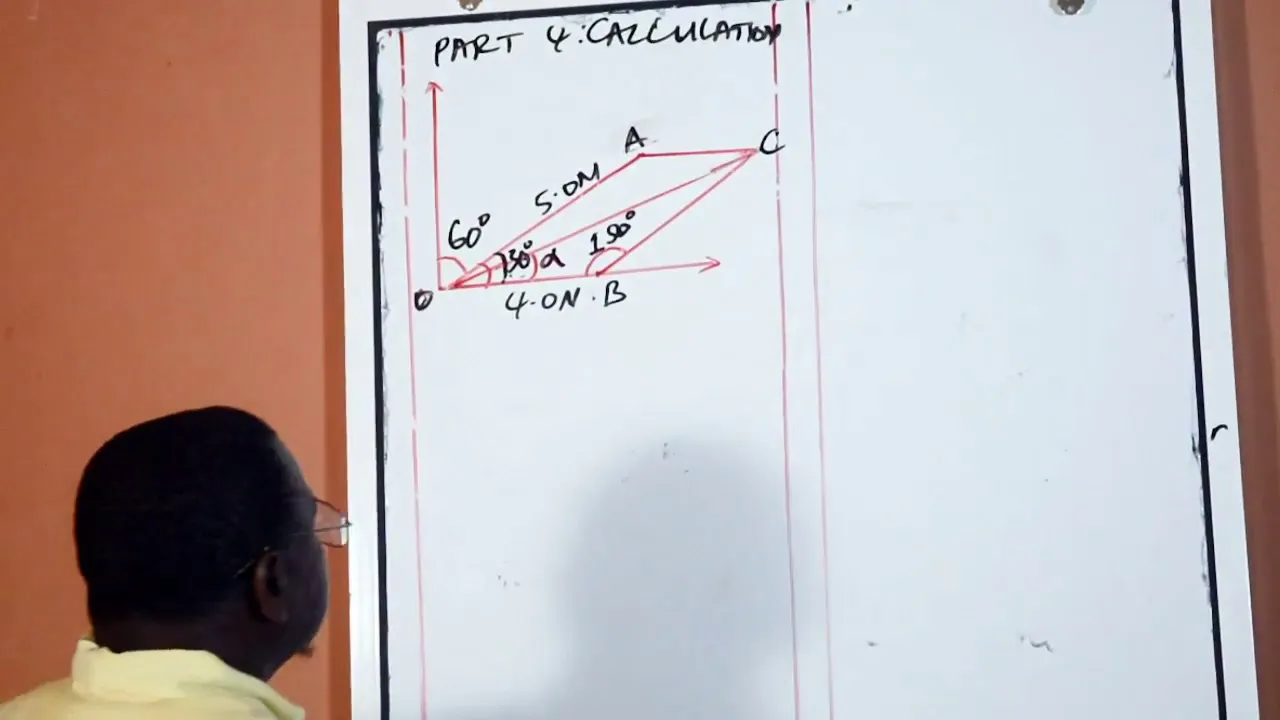 PART 4: CALCULATION
A
C
5.0N
60°
30° α
150°
O
4.0N. B